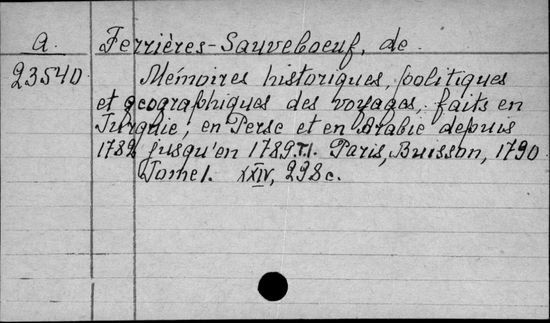 a. Ferrières-Sauveboeuf, de
23540. Mémoires historiques, politiques
et géographiques des voyages, faits en
Turquie, en Perse et en Arabie depuis
1782 jusqu'en 1789. T.1. Paris, Buisson, 1790
Tome 1. XXIV, 298 c.